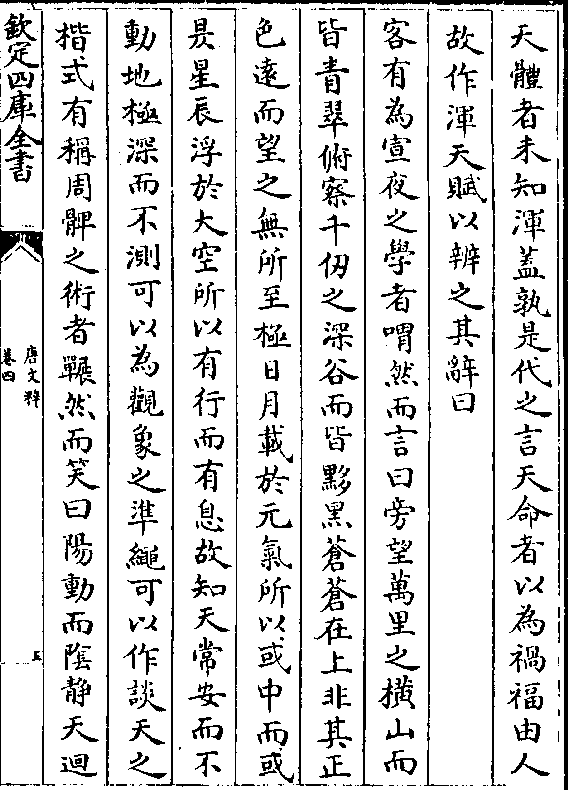 天體者未知渾蓋孰是代之言天命者以為禍福由人
故作渾天賦以辨之其辭曰
客有為宣夜之學者喟然而言曰旁望萬里之横山而
皆青翠俯察千仭之深谷而皆黝黒蒼蒼在上非其正
色逺而望之無所至極日月載於元氣所以或中而或
昃星辰浮於大空所以有行而有息故知天常安而不
動地極深而不測可以為觀象之準繩可以作談天之
楷式有稱周髀之術者冁然而笑曰陽動而隂静天迴
欽定四庫全書
唐文粹
卷四
五